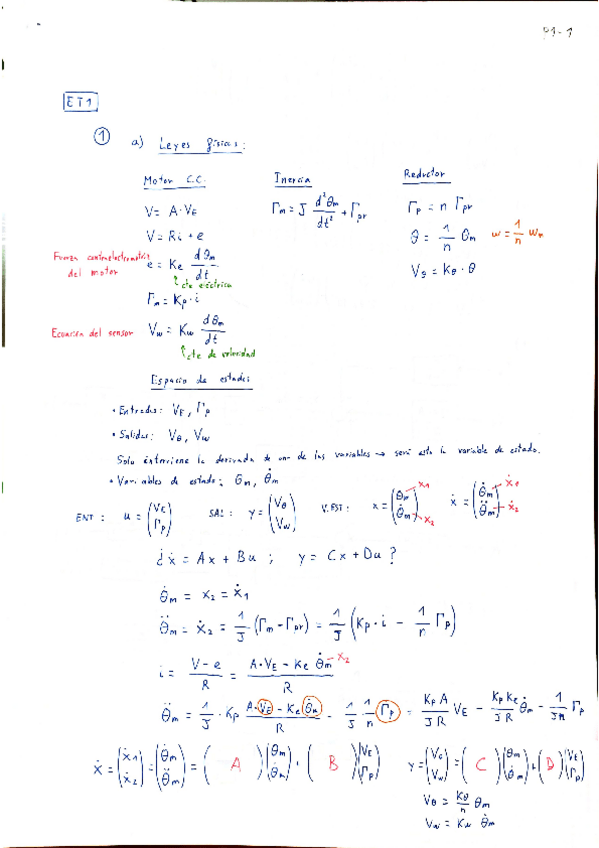 P1-1
ET1
1 a) Leyes físicas:
Motor C.C.
V = A·V_E
V = Ri + e
Fuerza contraelectromotriz del motor
e = Ke dθm/dt
↑ cte eléctrica
Γm = Kp·i
Ecuación del sensor
Vw = Kw dθm/dt
↑ cte de velocidad
Inercia
Γm = J d²θm/dt² + Γpr
Reductor
Γp = n Γpr
θ = 1/n θm w = 1/n wm
Vθ = Kθ · θ
Espacio de estados
• Entradas: V_E, Γp
• Salidas: Vθ, Vw
Solo interviene la derivada de una de las variables → será esta la variable de estado.
• Variables de estado: θm, θ̇m
ENT: u = (V_E Γp) SAL: y = (Vθ Vw) V.EST: x = (θm θ̇m) x1 x2 ẋ = (θ̇m θ̈m) ẋ1 ẋ2
¿ẋ = Ax + Bu ; y = Cx + Du?
θ̇m = x2 = ẋ1
θ̈m = ẋ2 = 1/J (Γm - Γpr) = 1/J (Kp·i - 1/n Γp)
i = (V - e)/R = (A·V_E - Ke θ̇m)/R x2
θ̈m = 1/J · Kp (A·V_E - Ke θ̇m)/R - 1/J 1/n Γp = KpA/JR V_E - KpKe/JR θ̇m - 1/Jn Γp
ẋ = (ẋ1 ẋ2) = (θ̇m θ̈m) = ( A )(θm θ̇m) + ( B )(V_E Γp) y = (Vθ Vw) = ( C )(θm θ̇m) + (D)(V_E Γp)
Vθ = Kθ/n θm
Vw = Kw θ̇m